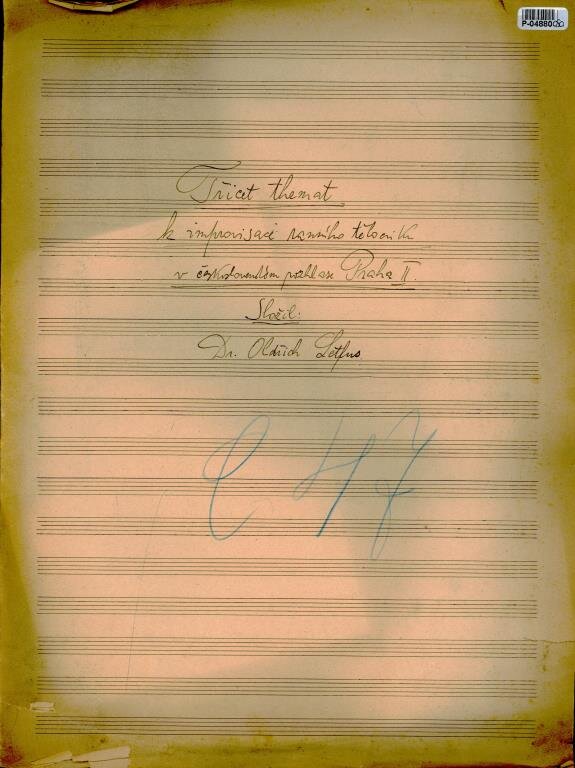 P-04880
Třicet themat
k improvisaci ranního tělocviku
v československém rozhlase Praha II
Složil:
Dr. Oldřich Letfus
C 47